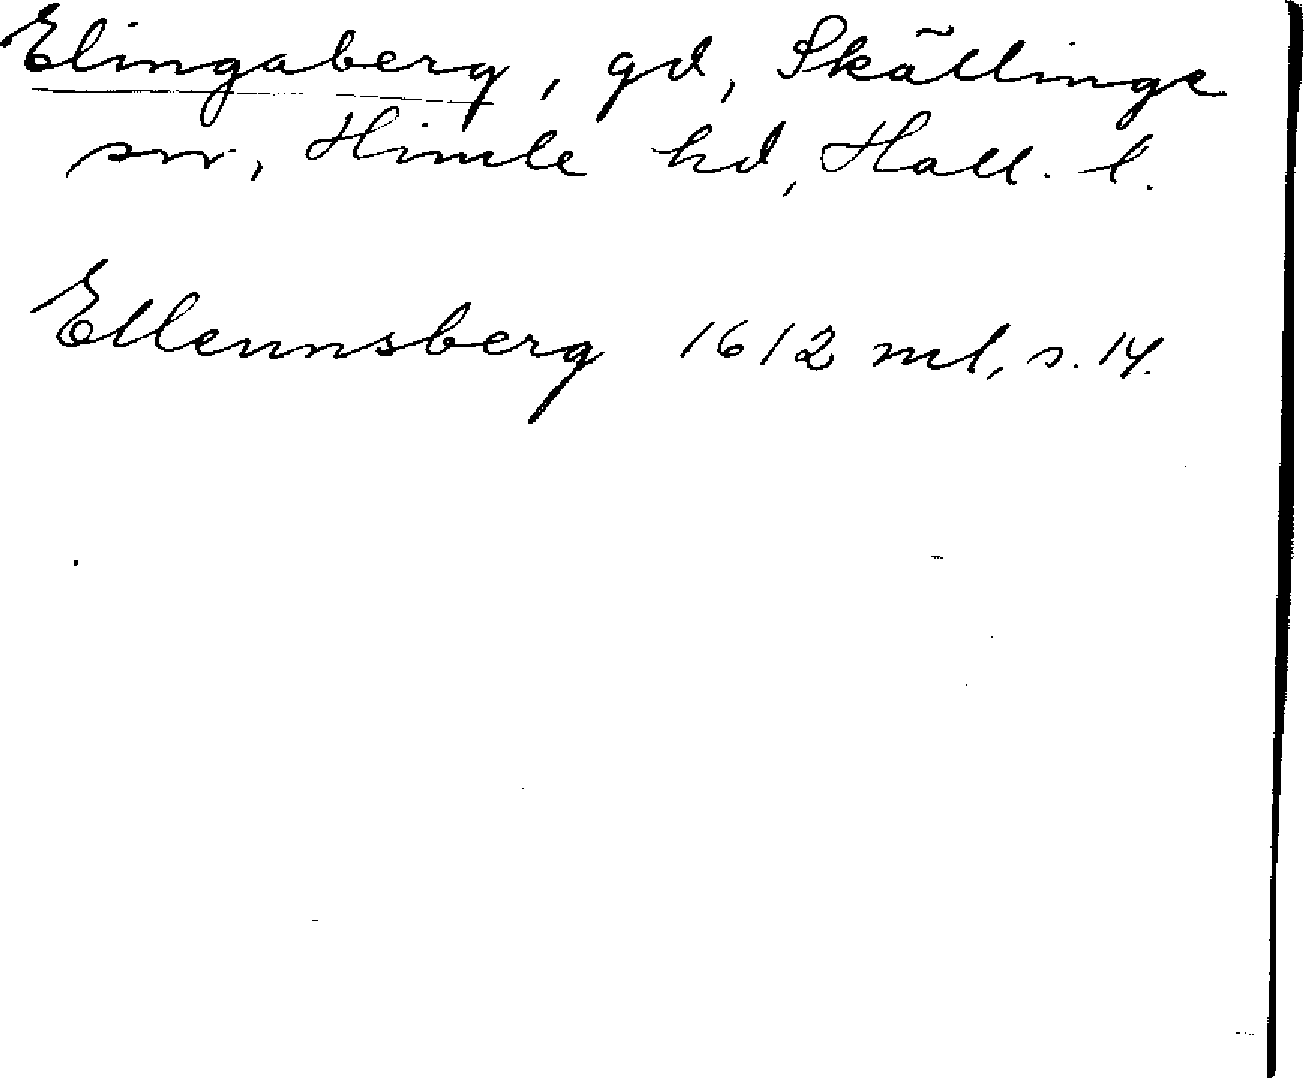 Elingaberg, gd, Skällinge
sn, Himle hd, Hall. l.
Ellennsberg 1612 ml, s. 14.